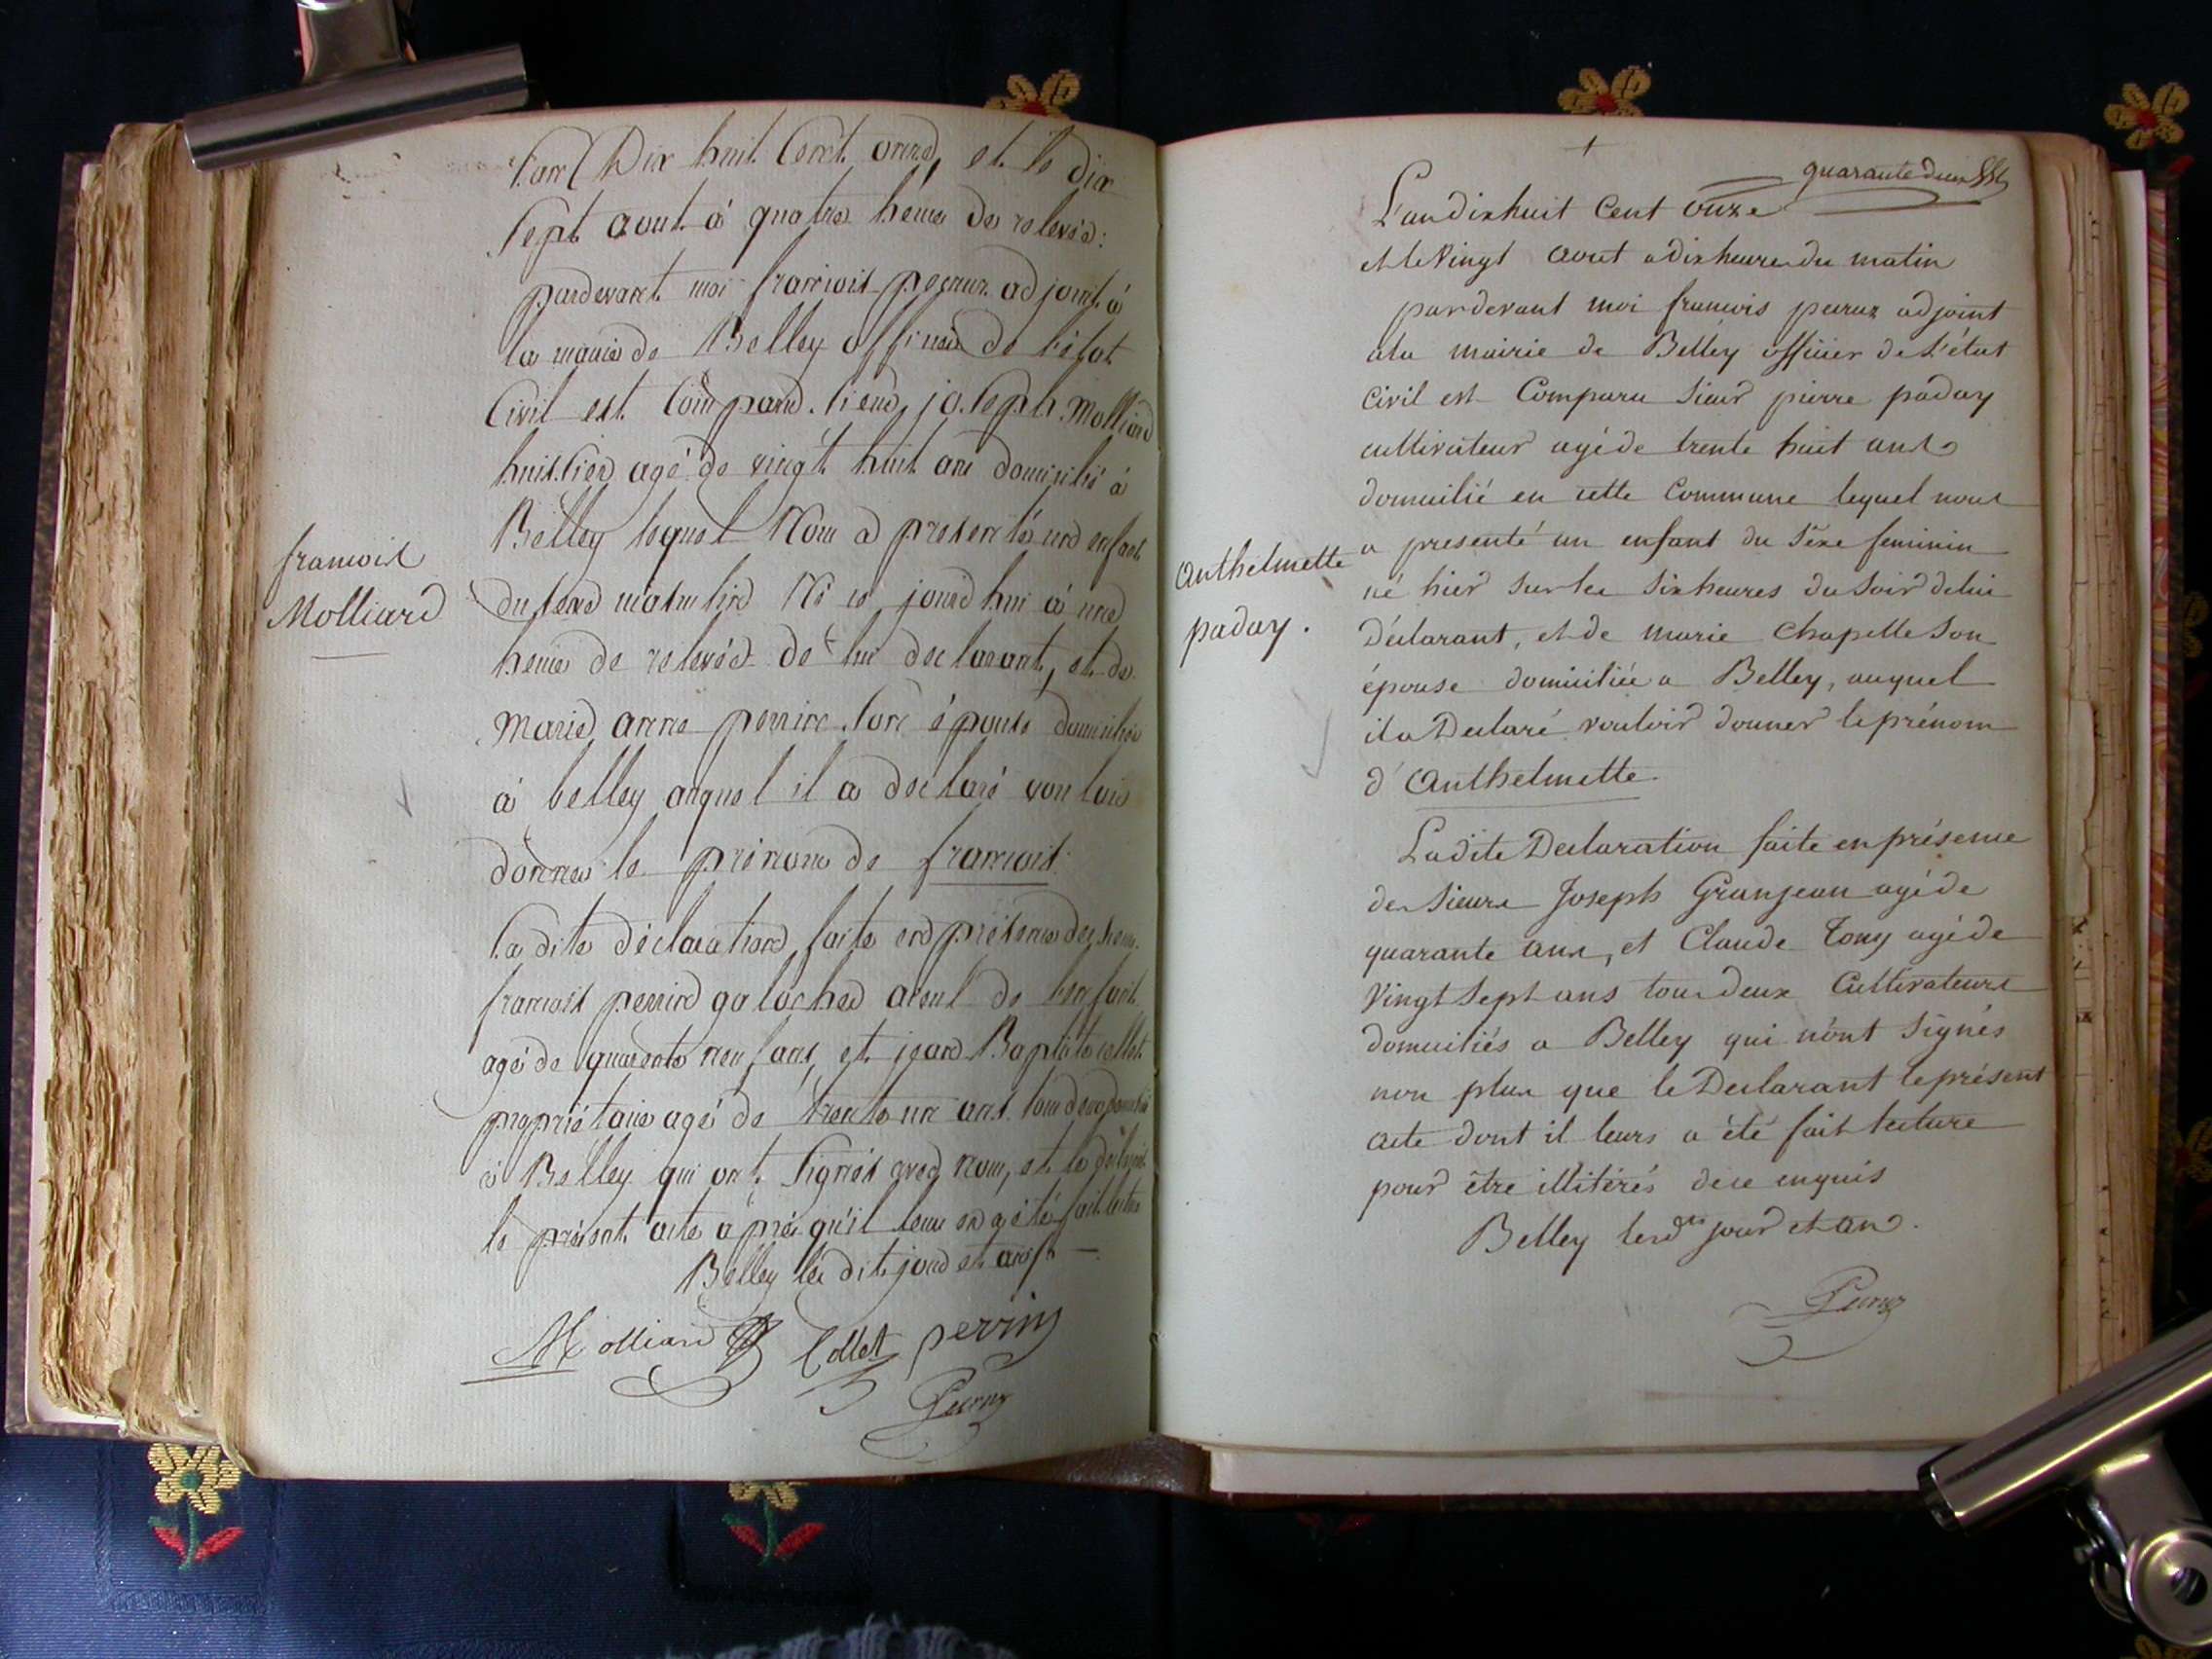 l'an Dix huit Cent onze, et le dix
sept aout à quatre heure de relevée:
pardevant moi francois peyruz adjoint à
la mairie de Belley officier de l'état
Civil est Comparu sieur joseph Molliard
huissier agé de vingt huit ans domicilié à
Belley lequel Nous a presenté un enfant
du sexe masculin Né ce jourd'hui à une
heure de relevée de lui declarant, et de
Marie anne perrin son épouse domiciliée
à belley auquel il a declaré vouloir
donner le prénom de francois.
La dite déclaration faite en présence des sieurs
francois perrin galocher aieul de l'enfant
agé de quarente neuf ans, et jean Baptiste collet
propriétaire agé de trente un ans tous deux domiciliés
à Belley qui ont signés avec nous, et le déclarant
le présent acte après qu'il leur en a été fait lecture
Belley les dit jour et an
Molliard Collet perrin
Peyruz
francois
Molliard
quarante deux
L'an dix huit Cent onze
et le vingt aout a dix heures du matin
pardevant moi francois peyruz adjoint
a la mairie de Belley officier de l'état
civil est Comparu sieur pierre paday
cultivateur agé de trente huit ans
domicilié en cette Commune lequel nous
a presenté un enfant du sexe feminin
né hier sur les six heures du soir de lui
Déclarant, et de marie Chapelle son
épouse domiciliée a Belley, auquel
il a Declaré vouloir donner le prénom
d'Anthelmette.
Ladite Declaration faite en présence
des sieurs Joseph Granjean agé de
quarante ans, et Claude Tony agé de
vingt sept ans tous deux Cultivateurs
domiciliés a Belley qui n'ont signés
non plus que le Declarant le présent
acte dont il leurs a été fait lecture
pour être illitérés de ce enquis
Belley lesd.ts jour et an.
Peyruz
Anthelmette
paday.